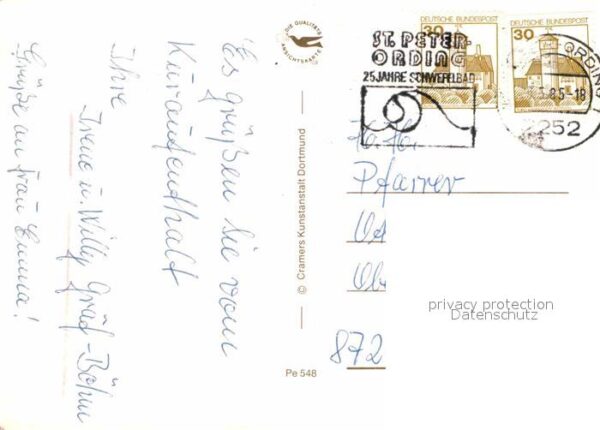 Es grüßen Sie vom
Kuraufenthalt
Ihre
Irene u. Willy Gräf-Böhm
Grüße an Frau Emma!
DIE QUALITÄTS
ANSICHTSKARTE
© Cramers Kunstanstalt Dortmund
Pe 548
ST. PETER-
ORDING
25 JAHRE SCHWEFELBAD
DEUTSCHE BUNDESPOST
30
DEUTSCHE BUNDESPOST
30
ORDING 1
.85-18
2252
Pfarrer
872
privacy protection
Datenschutz